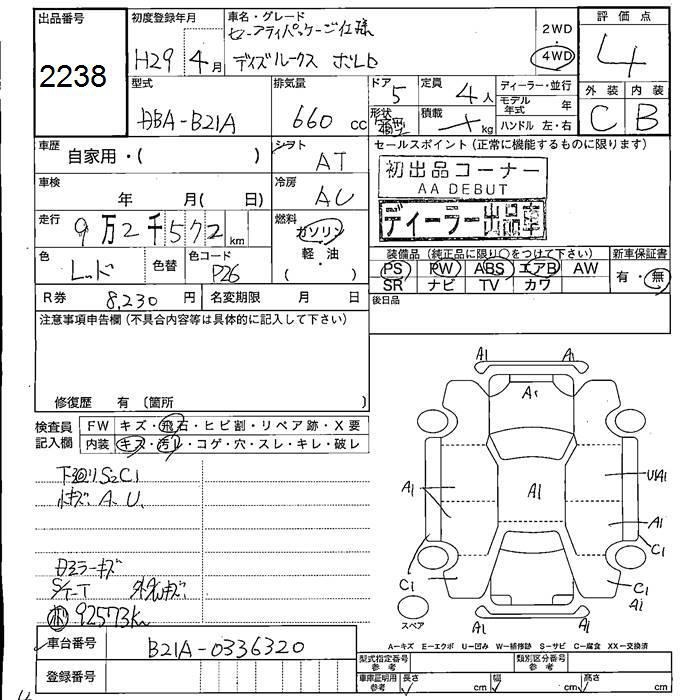 出品番号
2238
初度登録年月
H29年4月
車名・グレード
セーフティパッケージ仕様
デイズルークス ボレロ
2WD
4WD
評価点
4
外装 内装
C B
型式
DBA-B21A
排気量
660 cc
ドア
5
形状
定員
4人
積載
kg
ディーラー・並行
モデル年式 年
ハンドル 左・右
車歴
自家用・( )
シフト
AT
車検
年 月( 日)
冷房
AC
走行
9万2千572km
燃料
ガソリン
軽・油
( )
色
レッド
色替
色コード
P26
R券 8,230 円 名変期限 月 日
セールスポイント (正常に機能するものに限ります)
初出品コーナー
AA DEBUT
ディーラー出品車
装備品 (純正品に限り○をつけて下さい)
PS PW ABS エアB AW
SR ナビ TV カワ
新車保証書
有・無
後日品
注意事項申告欄 (不具合内容等は具体的に記入して下さい)
修復歴 有 〔箇所 〕
検査員記入欄
FW キズ・飛石・ヒビ割・リペア跡・X要
内装 キズ・汚レ・コゲ・穴・スレ・キレ・破レ
下廻りS2C1
小キズ A.U.
ミラーキズ
92573km
A1 A1
A1
A1 A1 U1A1
A1
C1
C1
C1
A1
A1 A1
スペア
A-キズ E-エクボ U-凹み W-補修跡 S-サビ C-腐食 XX-交換済
車台番号
B21A-0336320
登録番号
型式指定番号 参考
類別区分番号 参考
車庫証明用 参考
長さ cm 幅 cm 高さ cm